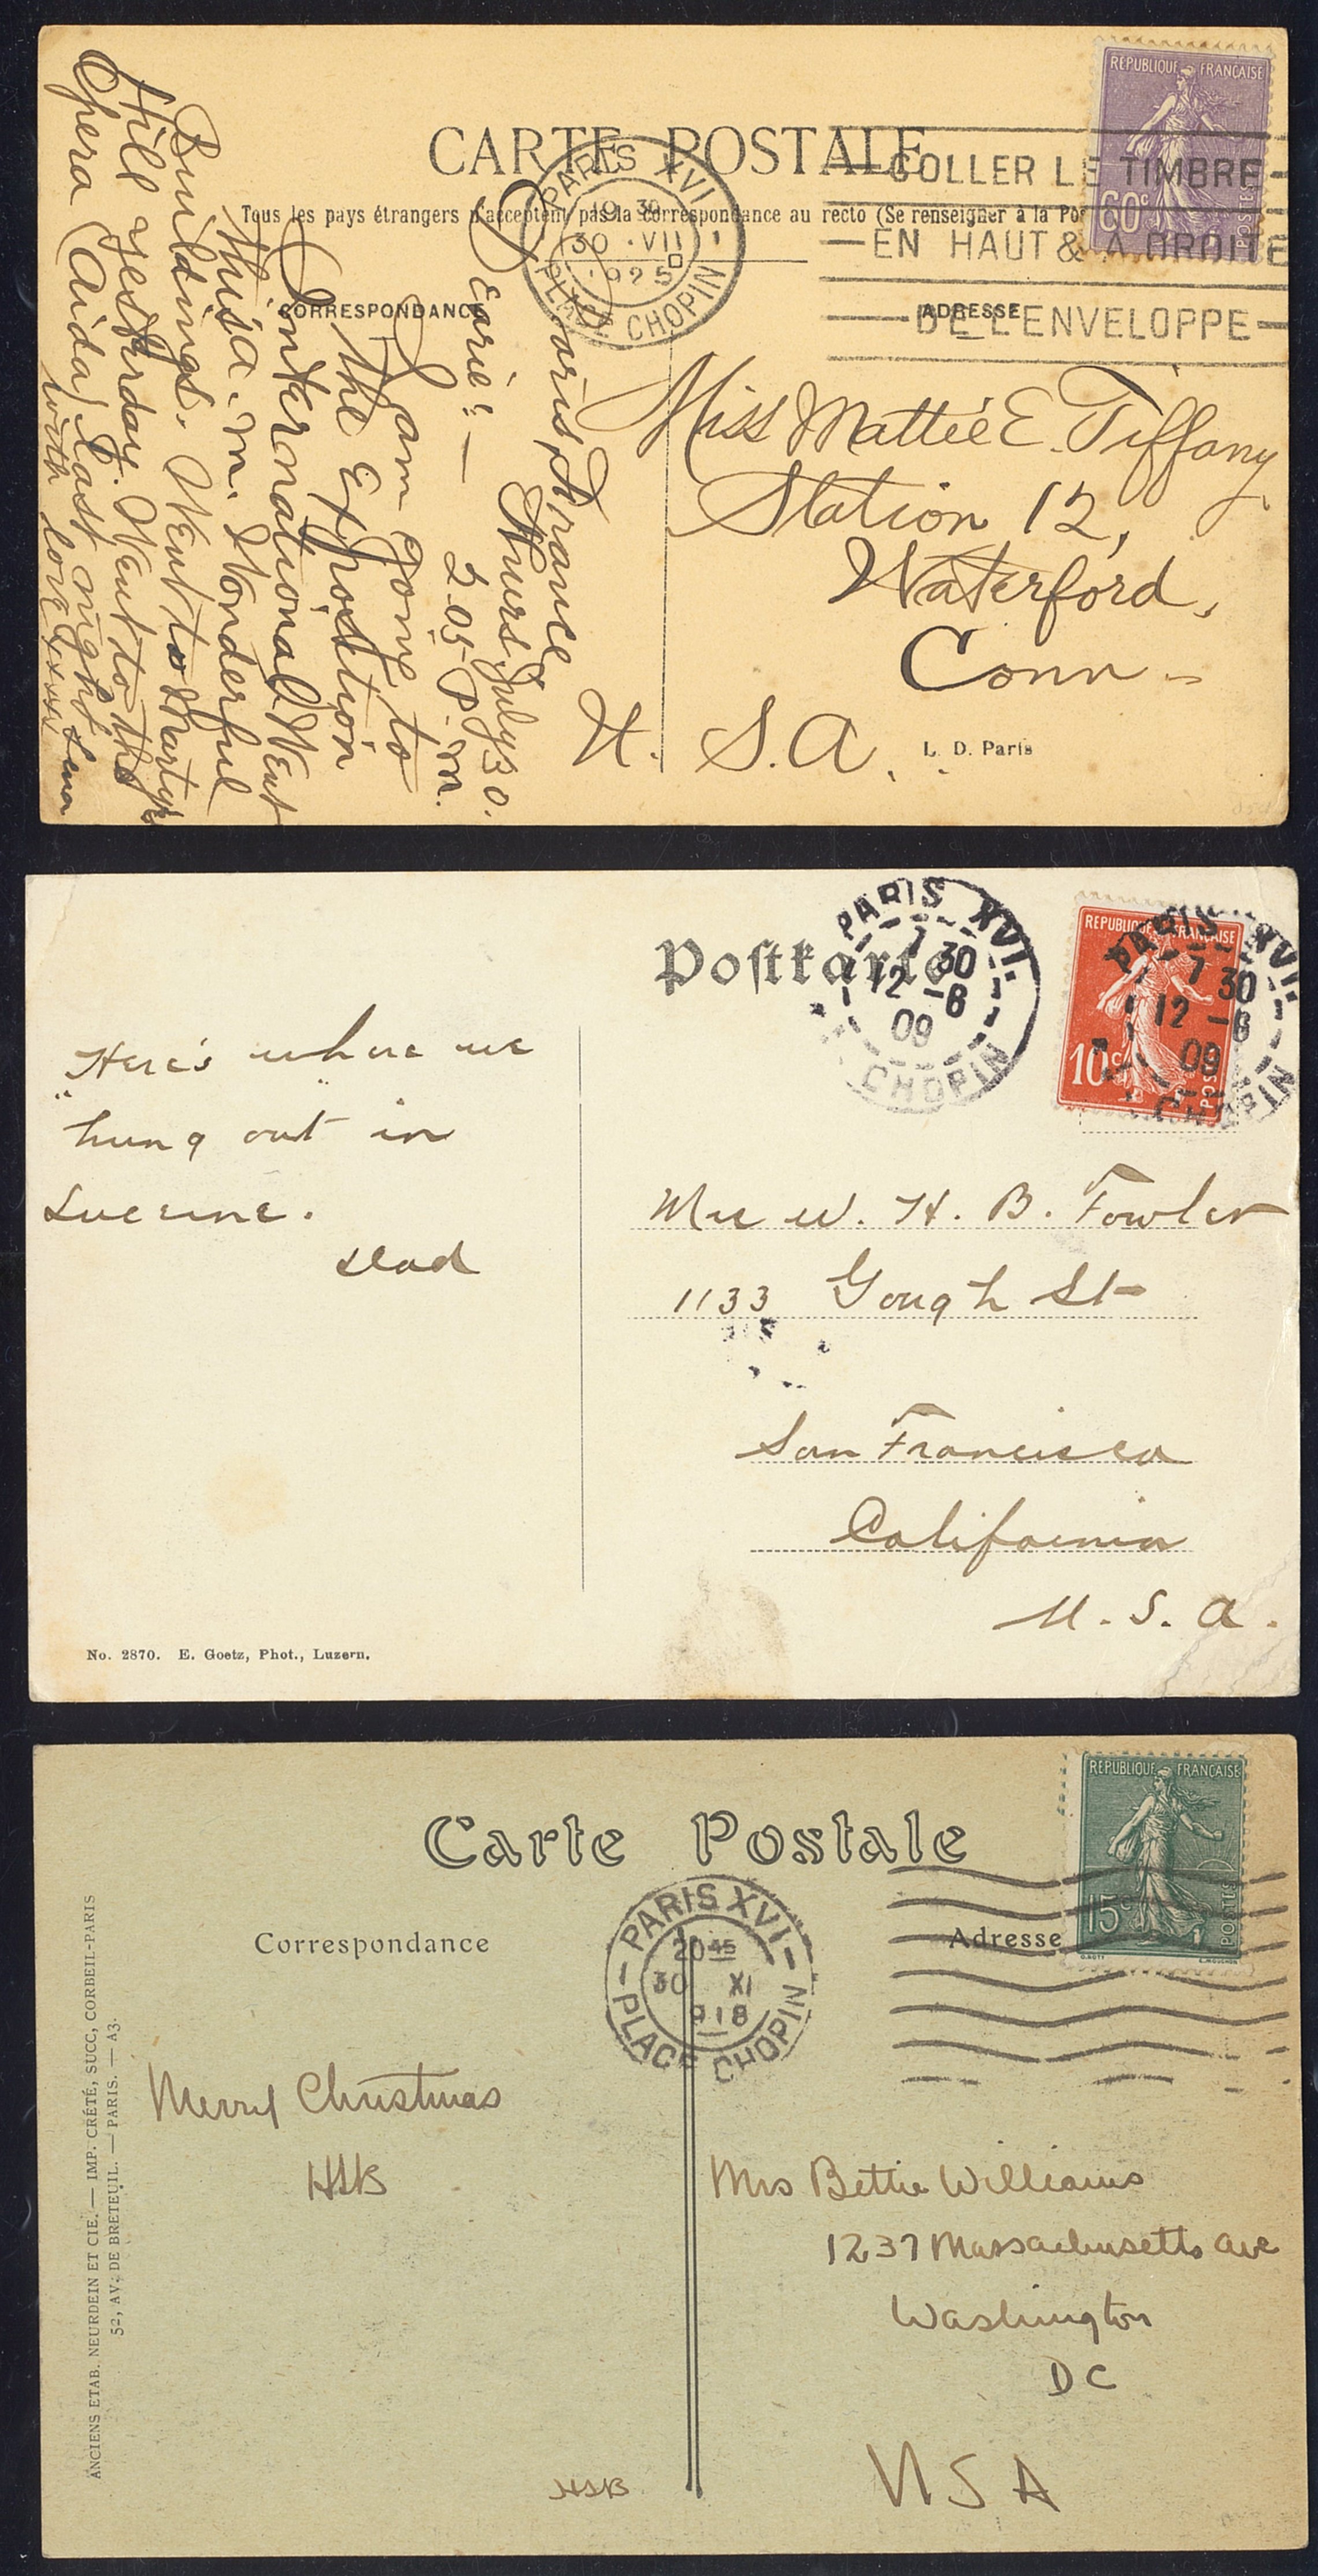 CARTE POSTALE
Tous les pays étrangers n'acceptent pas la correspondance au recto (Se renseigner à la Pos
CORRESPONDANCE
ADRESSE
REPUBLIQUE FRANÇAISE
60c
POSTES
PARIS XVI
19 30
30 · VII
1925
PLACE CHOPIN
COLLER LE TIMBRE
EN HAUT & A DROITE
DE L'ENVELOPPE
Paris, France
Thurs. July 30.
2.05 P.m.
Dearie: —
I am going to
the Exposition
International. Went
this a.m. Wonderful
Buildings. Went to Martyr's
Hill yesterday. Went to the
Opera (Aida) last night
with love xxxx Lena
Miss Mattie E. Tiffany
Station 12,
Waterford,
Conn -
U. S. A.
L. D. Paris
Postkarte
PARIS XVI
7 30
12 - 6
09
CHOPIN
REPUBLIQUE FRANÇAISE
10c
POS
PARIS XVI
7 30
12 - 6
09
CHOPIN
Here's where we
"hung" out in
Lucerne.
Dad
Mrs W. H. B. Fowler
1133 Gough St
San Francisco
California
U. S. A.
No. 2870. E. Goetz, Phot., Luzern.
Carte Postale
Correspondance
Adresse
REPUBLIQUE FRANÇAISE
15c
POSTES
O. ROTY
E. MOUCHON
PARIS XVI
20 45
30 XI
918
PLACE CHOPIN
ANCIENS ETAB. NEURDEIN ET CIE. — IMP. CRÉTÉ, SUCC, CORBEIL-PARIS
52, AV. DE BRETEUIL. — PARIS. — A3.
Merry Christmas
HSB
Mrs Bettie Williams
1237 Massachusetts ave
Washington
DC
USA
HSB